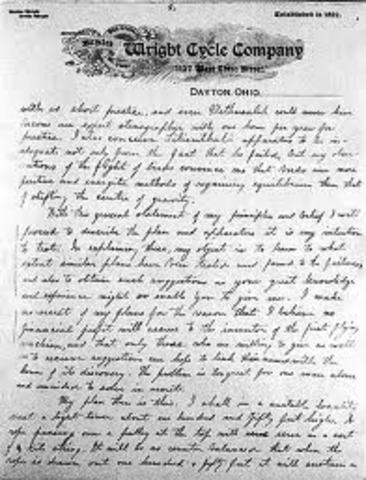 Established in 1892.
Wright Cycle Company
1127 West Third Street.
DAYTON, OHIO.
with as short practice, and even Methuselah could never have
become an expert stenographer with one hour per year for
practice. I also conceive Lilienthal's apparatus to be in-
adequate not only from the fact that he failed, but my obser-
vations of the flight of birds convince me that birds use more
positive and energetic methods of regaining equilibrium than that
of shifting the center of gravity.
With this general statement of my principles and belief I will
proceed to describe the plan and apparatus it is my intention
to test. In explaining these, my object is to learn to what
extent similar plans have been tested and found to be failures,
and also to obtain such suggestions as your great knowledge
and experience might enable you to give me. I make
no secret of my plans for the reason that I believe no
financial profit will accrue to the inventor of the first flying
machine, and that only those who are willing to give as well
as to receive suggestions can hope to link their names with the
honor of its discovery. The problem is too great for one man alone
and unaided to solve in secret.
My plan then is this. I shall in a suitable locality
erect a light tower about one hundred and fifty feet high. A
rope passing over a pulley at the top will serve as a sort
of kite string. It will be so counter balanced that when the
rope is drawn out one hundred & fifty feet it will sustain a